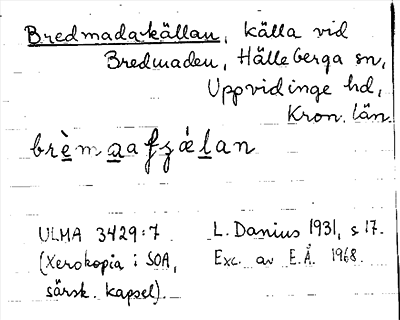 Bredmadakällan, källa vid
Bredmaden, Hälleberga sn,
Uppvidinge hd,
Kron. län.
brèmaafzǽlan
ULMA 3429:7
(Xerokopia i SOA,
särsk. kapsel).
L. Danius 1931, s 17.
Exc. av E.Å. 1968.